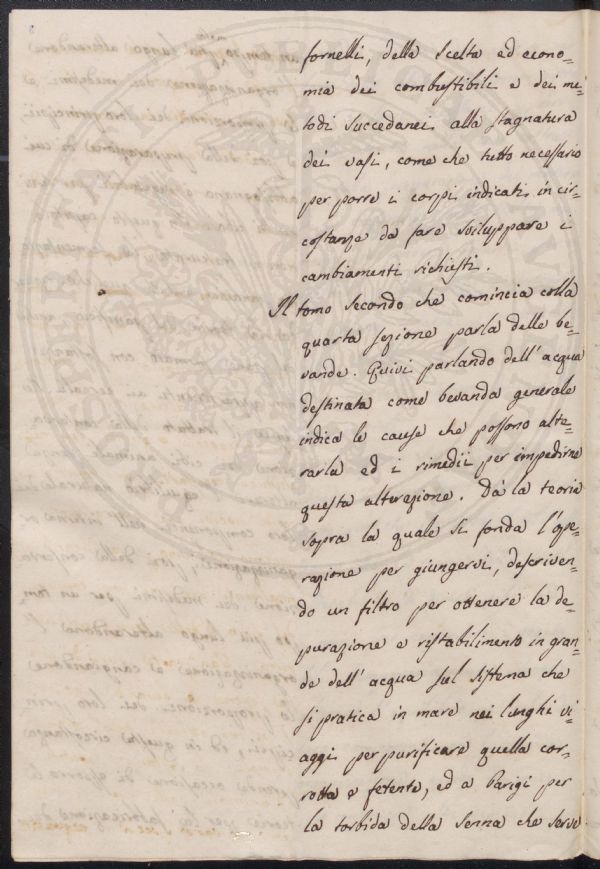 fornelli, della scelta ed econo=
mia dei combustibili e dei me=
todi succedanei alla stagnatura
dei vasi, come che tutto necessario
per porre i corpi indicati in cir=
costanze da fare sviluppare i
cambiamenti richiesti.
Il tomo secondo che comincia colla
quarta sezione parla delle be=
vande. Quivi parlando dell'acqua
destinata come bevanda generale
indica le cause che possono alte=
rarla ed i rimedii per impedirne
questa alterazione. Dà la teoria
sopra la quale si fonda l'ope=
razione per giungervi, descriven=
do un filtro per ottenere la de=
purazione e ristabilimento in gran=
de dell'acqua sul sistema che
si pratica in mare nei lunghi vi=
aggi per purificare quella cor=
rotta e fetente, ed a Parigi per
la torbida della Senna che serve